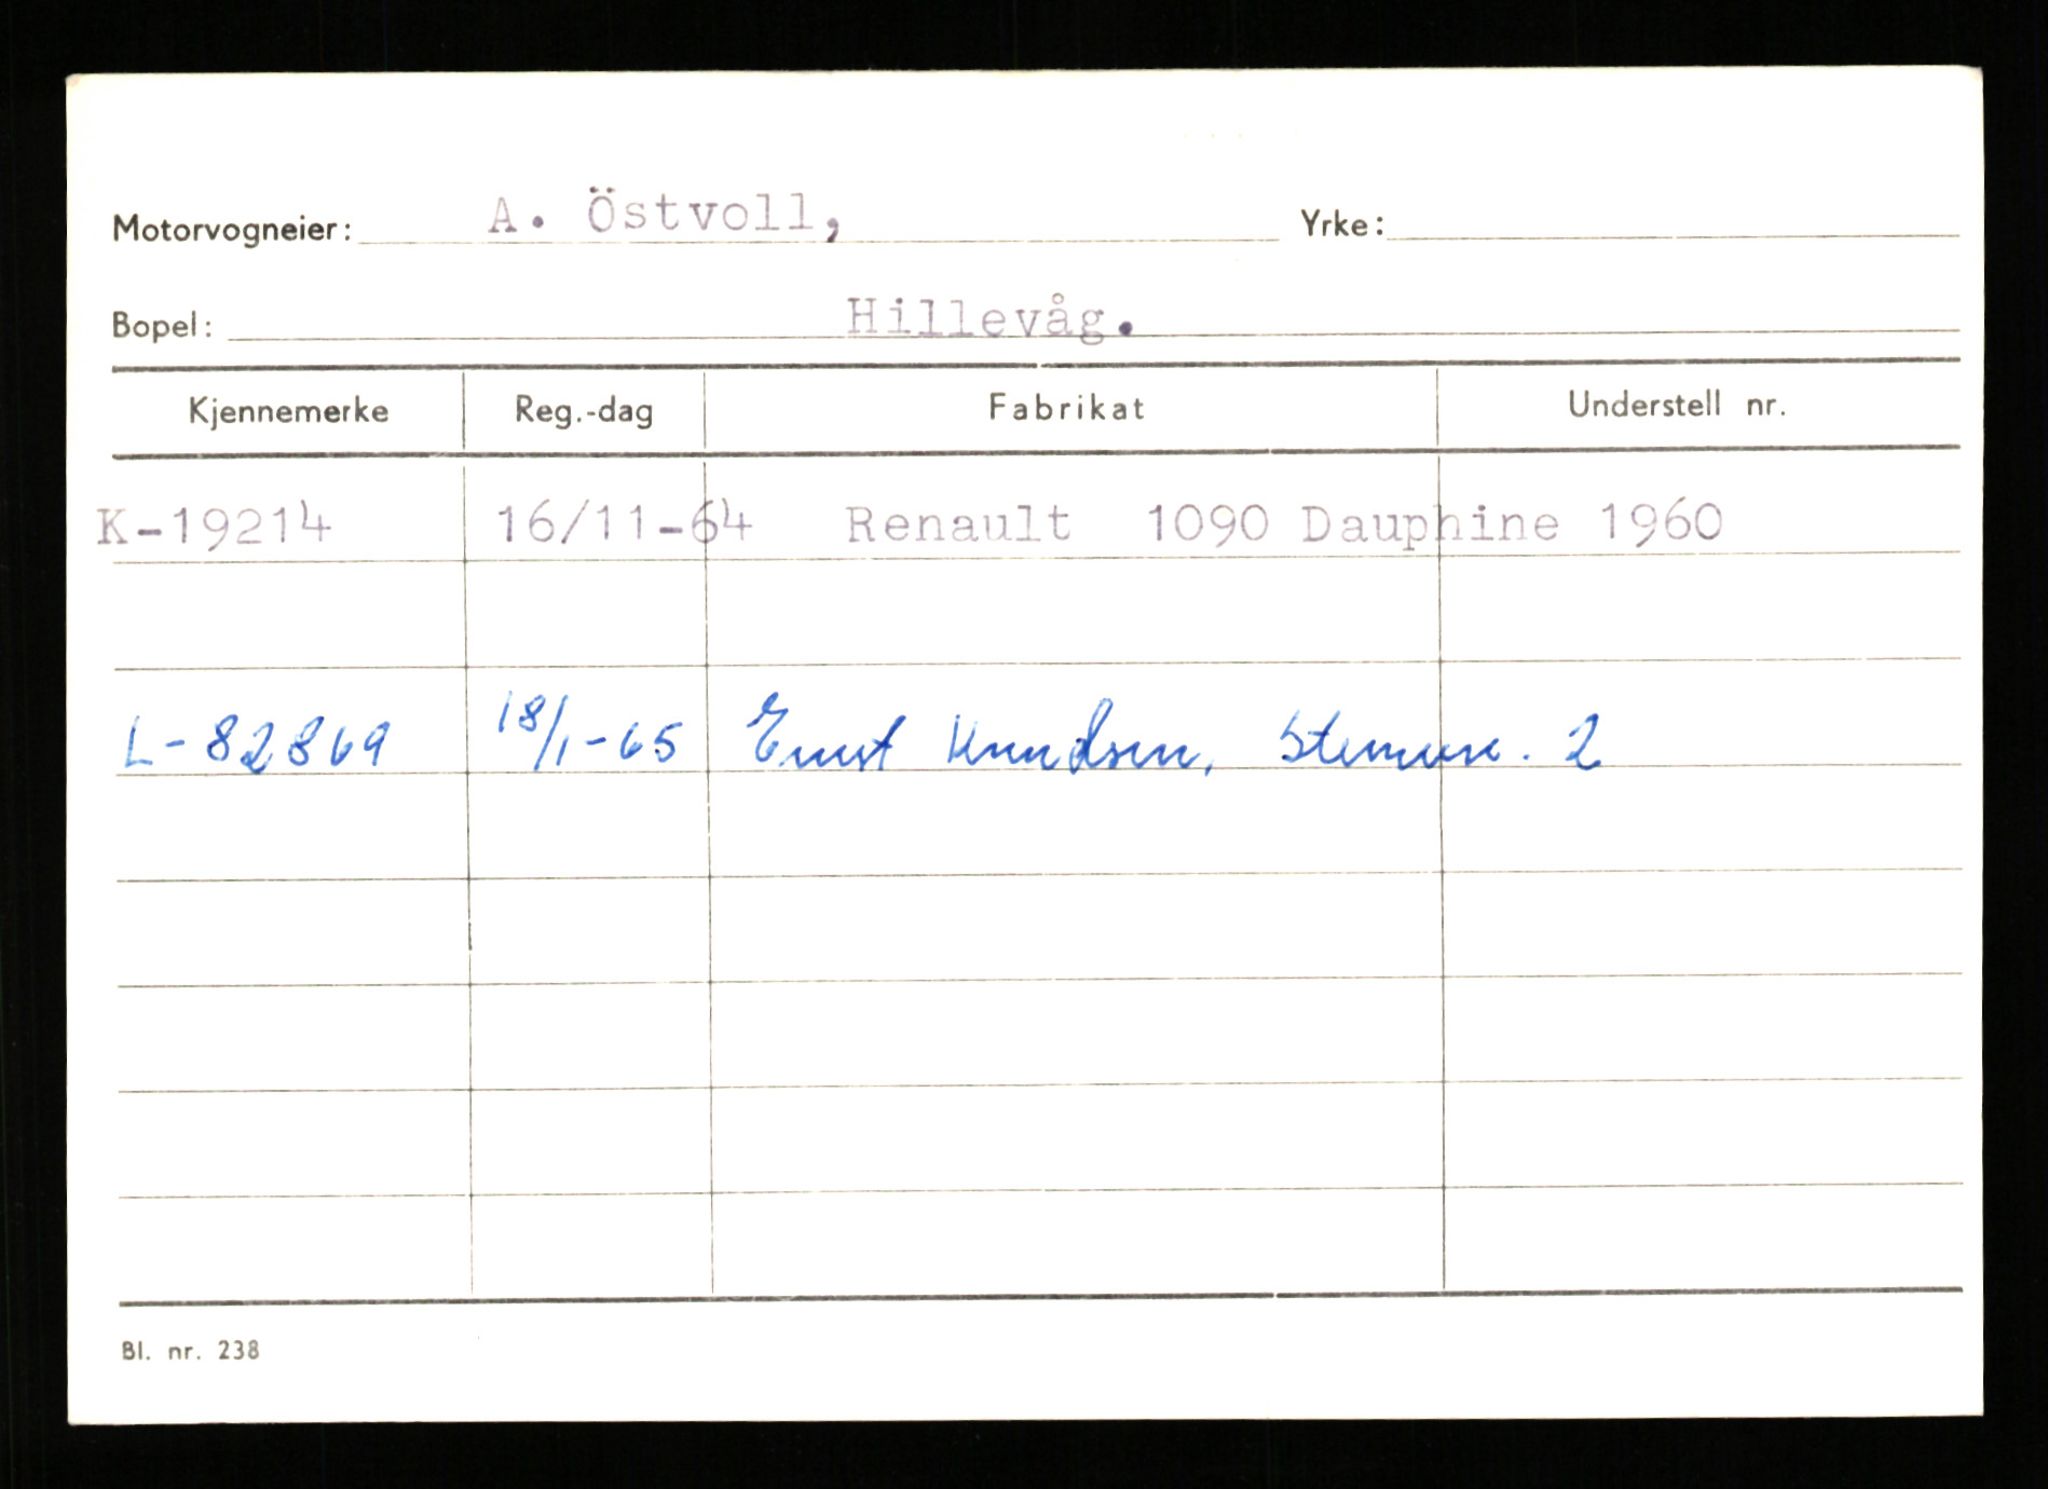 Motorvogneier: A. Östvoll, Yrke:
Bopel: Hillevåg.
Kjennemerke Reg.-dag Fabrikat Understell nr.
K-19214 16/11-64 Renault 1090 Dauphine 1960
L-82869 18/1-65 Ernst Knudsen, 2
Bl. nr. 238